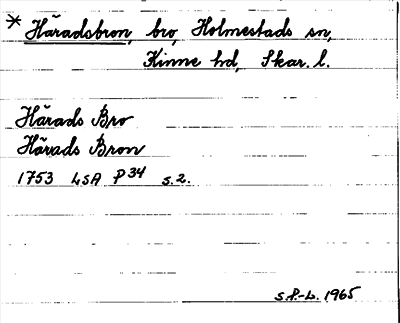 * Häradsbron, bro, Holmestads sn,
Kinne hd, Skar. l.
Härads Bro
Härads Bron
1753 LSA P34 s.2.
S.P.-L. 1965